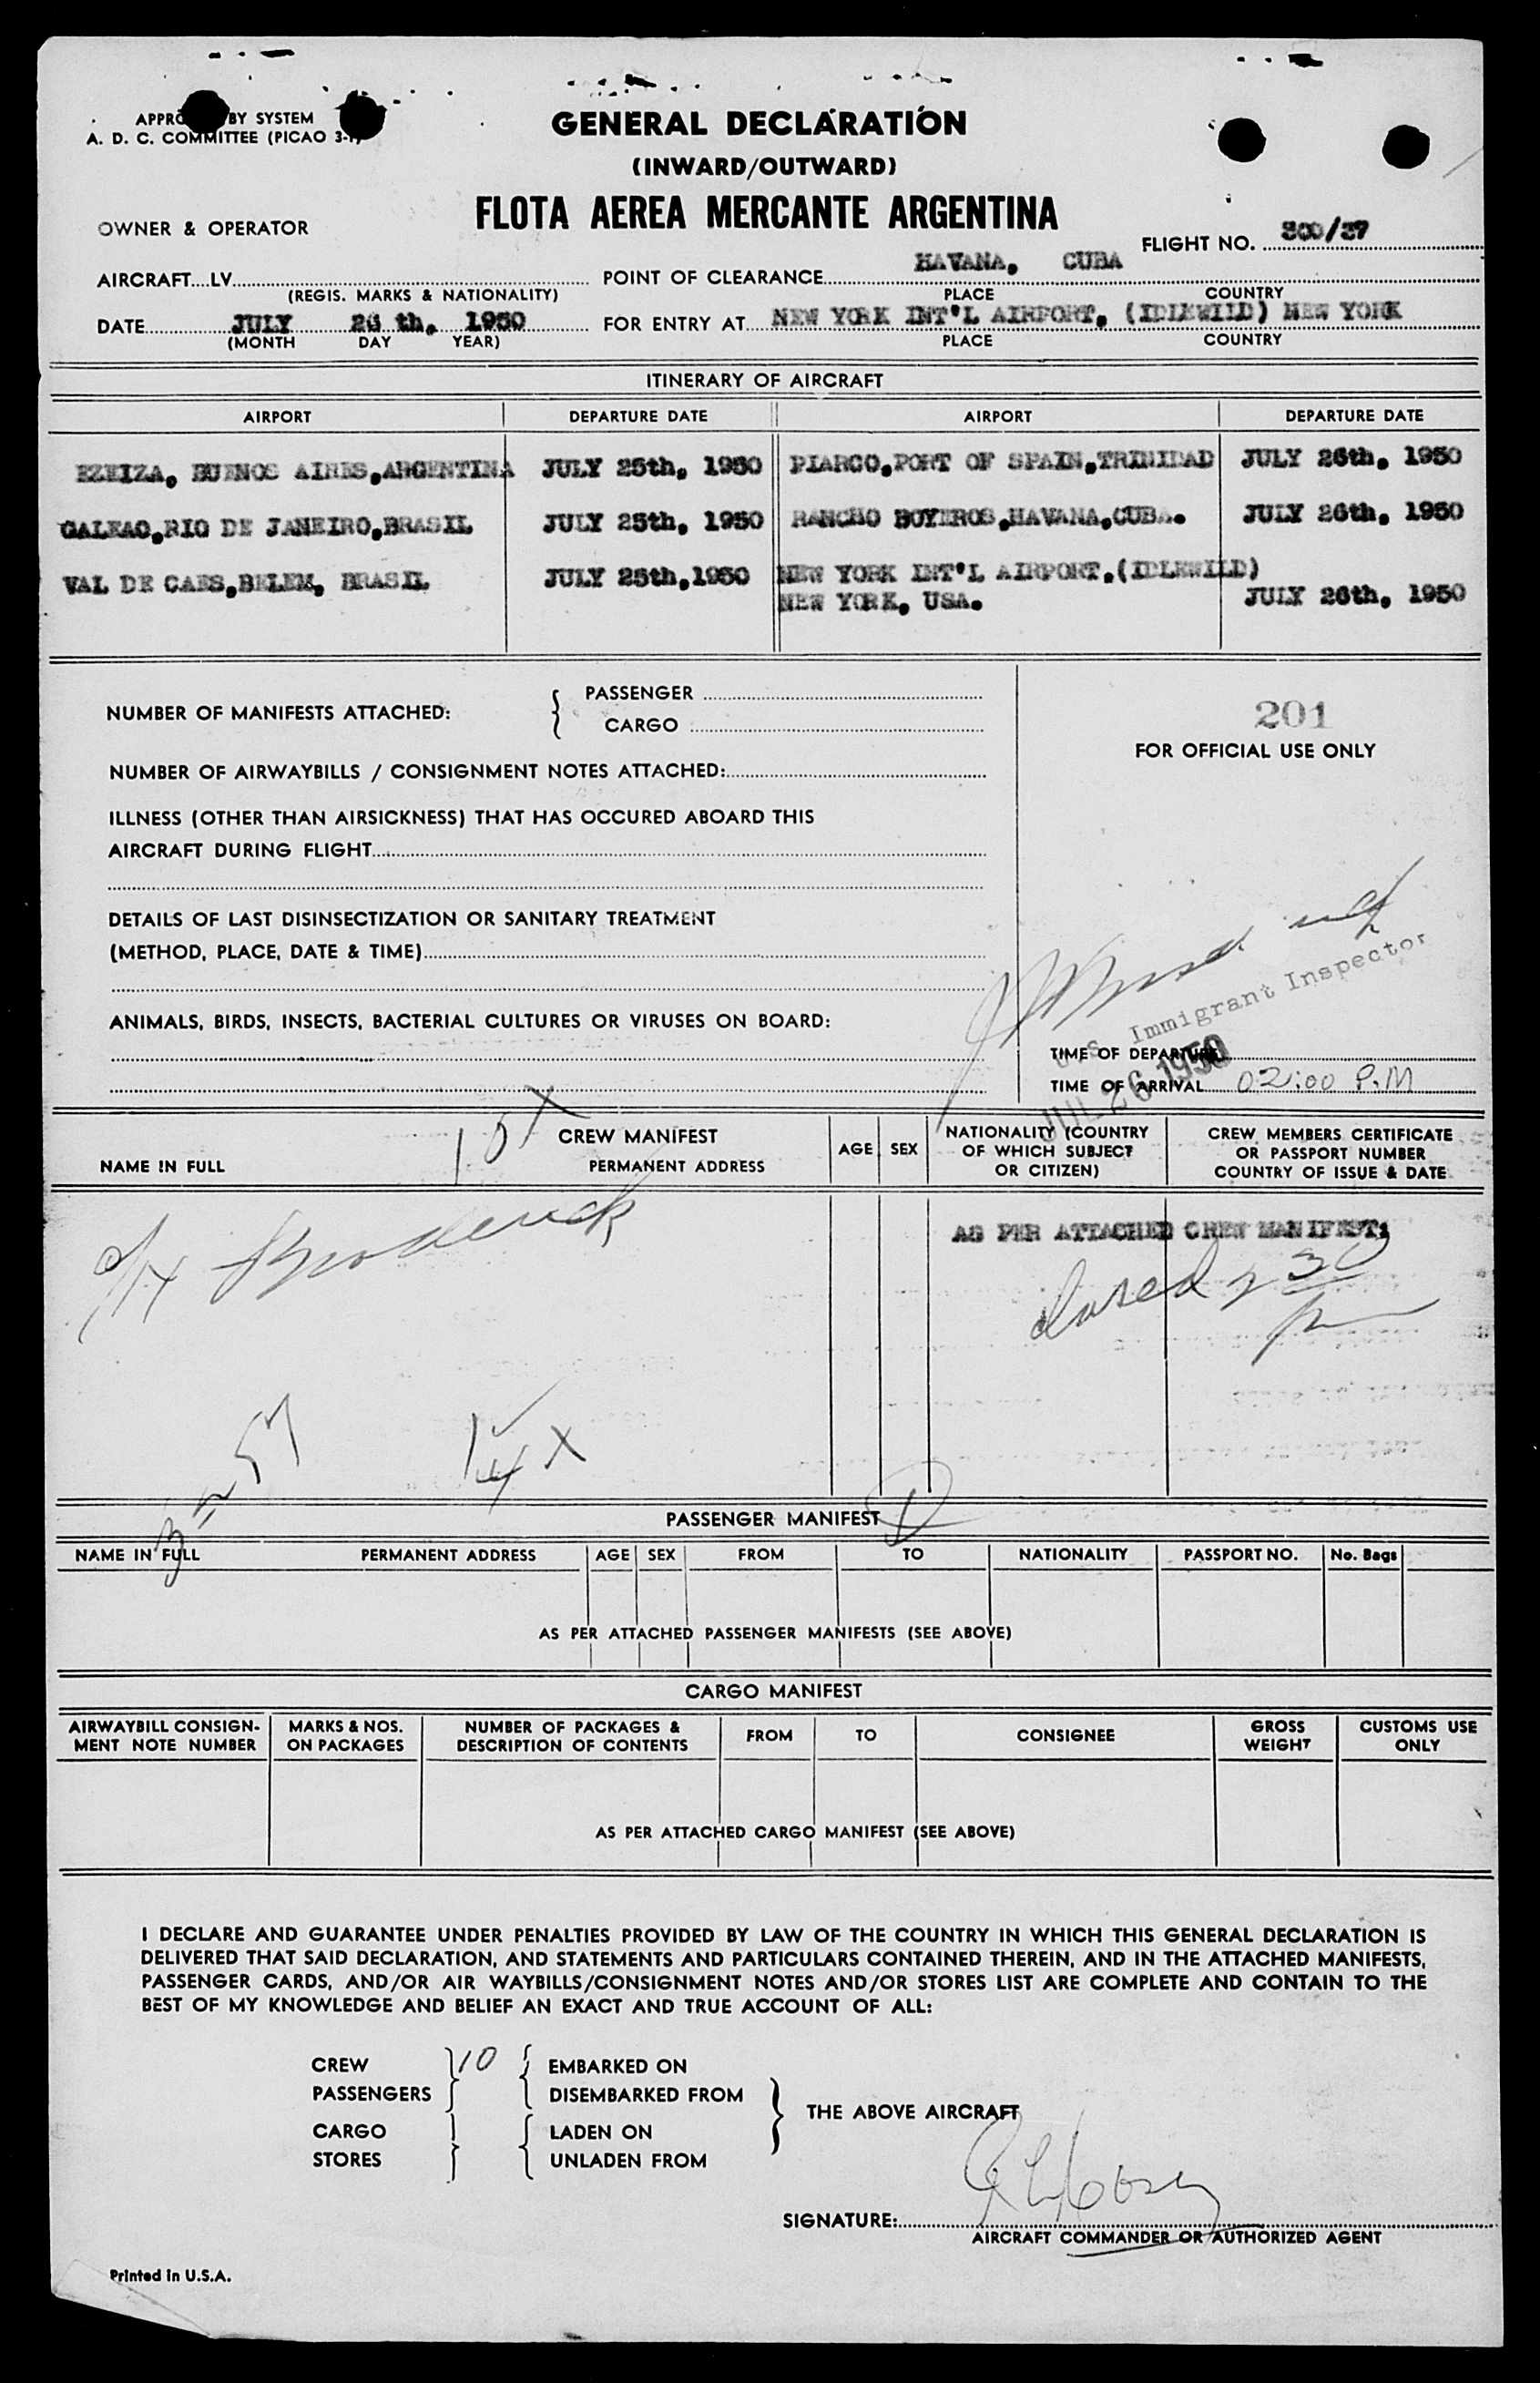 APPROVED BY SYSTEM
A. D. C. COMMITTEE (PICAO 3-1)
GENERAL DECLARATION
(INWARD/OUTWARD)
FLOTA AEREA MERCANTE ARGENTINA
OWNER & OPERATOR
FLIGHT NO. 300/37
AIRCRAFT....LV
(REGIS. MARKS & NATIONALITY)
POINT OF CLEARANCE HAVANA, CUBA
PLACE COUNTRY
DATE JULY 26 th. 1950
(MONTH DAY YEAR)
FOR ENTRY AT NEW YORK INT'L AIRPORT, (IDLEWILD) NEW YORK
PLACE COUNTRY
ITINERARY OF AIRCRAFT
AIRPORT DEPARTURE DATE AIRPORT DEPARTURE DATE
EZEIZA, BUENOS AIRES,ARGENTINA JULY 25th, 1950 PIARCO,PORT OF SPAIN,TRINIDAD JULY 26th, 1950
GALEAO,RIO DE JANEIRO,BRASIL JULY 25th, 1950 RANCHO BOYEROS,HAVANA,CUBA. JULY 26th, 1950
VAL DE CAES,BELEM, BRASIL JULY 25th,1950 NEW YORK INT'L AIRPORT.(IDLEWILD)
NEW YORK, USA. JULY 26th, 1950
NUMBER OF MANIFESTS ATTACHED:
PASSENGER
CARGO
201
FOR OFFICIAL USE ONLY
NUMBER OF AIRWAYBILLS / CONSIGNMENT NOTES ATTACHED:
ILLNESS (OTHER THAN AIRSICKNESS) THAT HAS OCCURED ABOARD THIS
AIRCRAFT DURING FLIGHT
DETAILS OF LAST DISINSECTIZATION OR SANITARY TREATMENT
(METHOD, PLACE, DATE & TIME)
U S Immigrant Inspector
ANIMALS, BIRDS, INSECTS, BACTERIAL CULTURES OR VIRUSES ON BOARD:
TIME OF DEPARTURE
JUL 26 1950
TIME OF ARRIVAL 02:00 P.M
10X
CREW MANIFEST
NAME IN FULL PERMANENT ADDRESS
AGE SEX
NATIONALITY (COUNTRY
OF WHICH SUBJECT
OR CITIZEN)
CREW MEMBERS CERTIFICATE
OR PASSPORT NUMBER
COUNTRY OF ISSUE & DATE
Broderick
AS PER ATTACHED CREW MANIFEST:
closed 2 30
pm
14 X
PASSENGER MANIFEST
NAME IN FULL PERMANENT ADDRESS AGE SEX FROM TO NATIONALITY PASSPORT NO. No. Bags
AS PER ATTACHED PASSENGER MANIFESTS (SEE ABOVE)
CARGO MANIFEST
AIRWAYBILL CONSIGN-
MENT NOTE NUMBER
MARKS & NOS.
ON PACKAGES
NUMBER OF PACKAGES &
DESCRIPTION OF CONTENTS
FROM TO CONSIGNEE
GROSS
WEIGHT
CUSTOMS USE
ONLY
AS PER ATTACHED CARGO MANIFEST (SEE ABOVE)
I DECLARE AND GUARANTEE UNDER PENALTIES PROVIDED BY LAW OF THE COUNTRY IN WHICH THIS GENERAL DECLARATION IS
DELIVERED THAT SAID DECLARATION, AND STATEMENTS AND PARTICULARS CONTAINED THEREIN, AND IN THE ATTACHED MANIFESTS,
PASSENGER CARDS, AND/OR AIR WAYBILLS/CONSIGNMENT NOTES AND/OR STORES LIST ARE COMPLETE AND CONTAIN TO THE
BEST OF MY KNOWLEDGE AND BELIEF AN EXACT AND TRUE ACCOUNT OF ALL:
CREW 10 EMBARKED ON
PASSENGERS DISEMBARKED FROM
THE ABOVE AIRCRAFT
CARGO LADEN ON
STORES UNLADEN FROM
SIGNATURE:
AIRCRAFT COMMANDER OR AUTHORIZED AGENT
Printed in U.S.A.